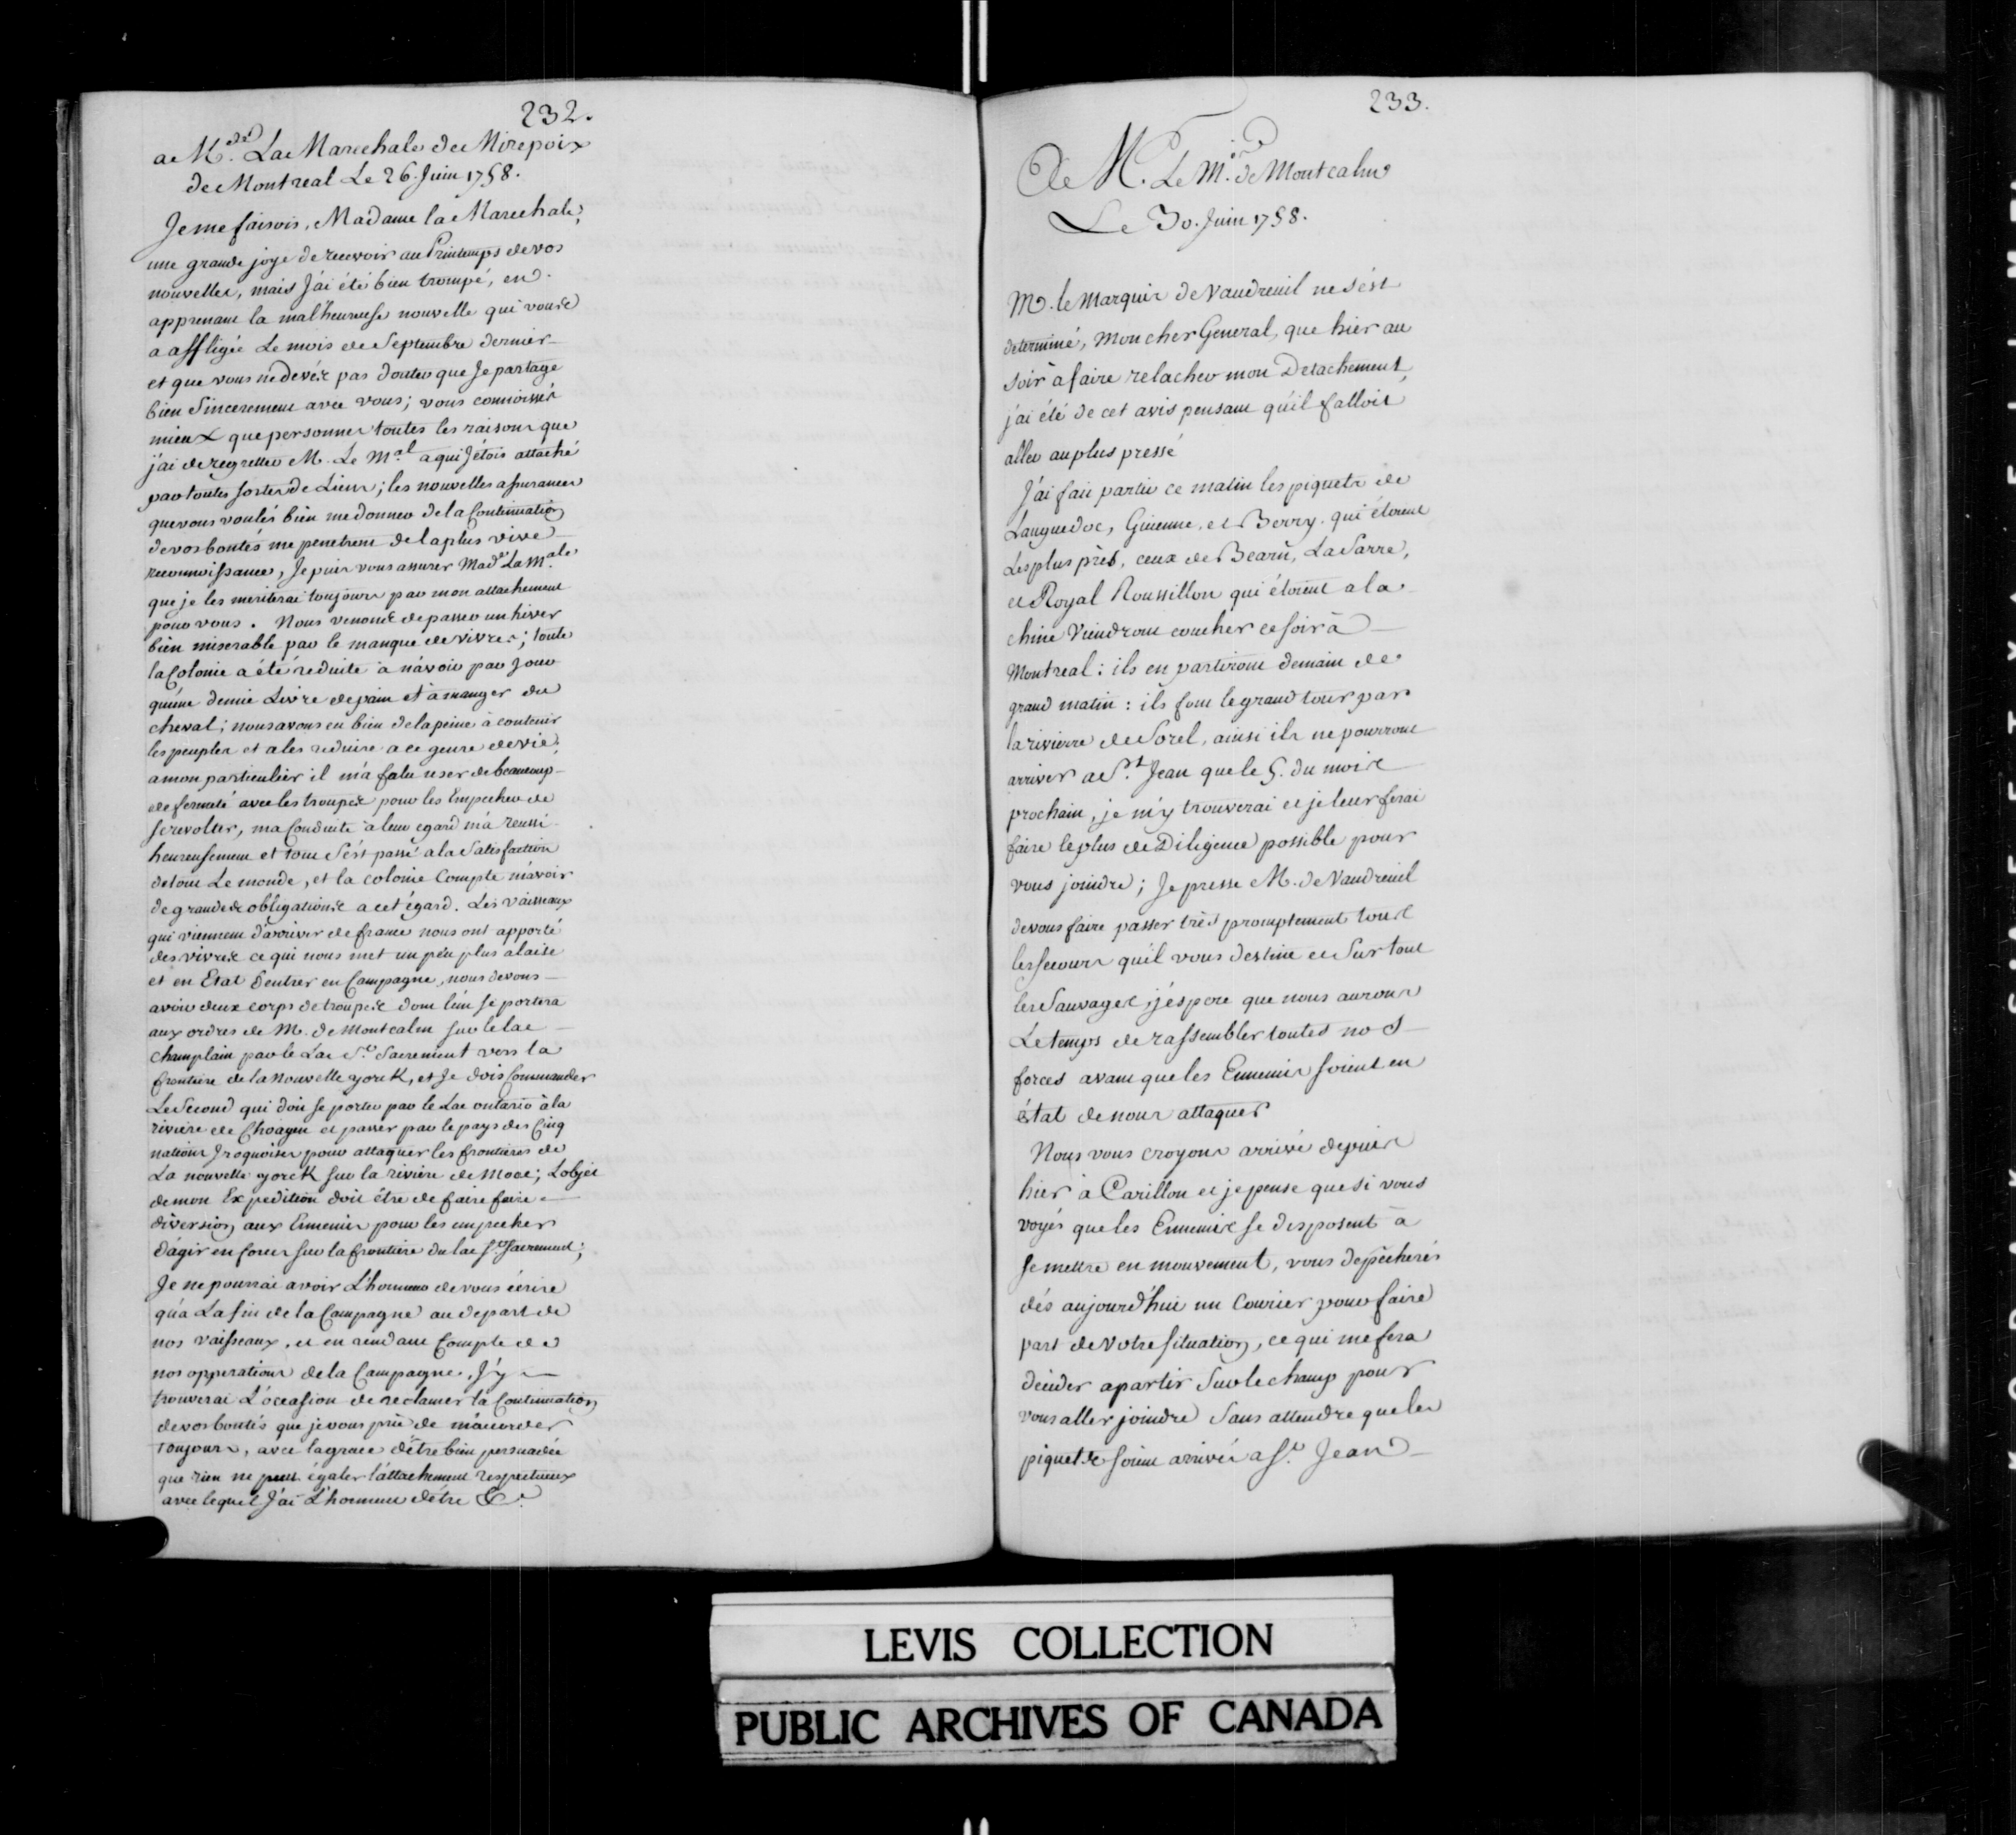 232.
a M.de La Marechale de Mirepoix
de Montreal Le 26. Juin 1758.
Je me faisois, Madame la Marechale,
une grande joye de recevoir au Printemps de vos
nouvelles, mais J'ai été bien trompé, en
apprenant la malheureuse nouvelle qui vous
a affligée Le mois de Septembre dernier
et que vous ne devés pas douter que Je partage
bien Sincerement avec vous; vous connoissés
mieux que personne toutes les raisons que
j'ai de regretter M. Le M.al a qui J'étois attaché
par toutes sortes de Liens; les nouvelles assurances
que vous voulés bien me donner de la Continuation
de vos bontés me penetrent de la plus vive
reconnoissance, Je puis vous assurer Mad.e La M.ale
que je les meriterai toujours par mon attachement
pour vous. Nous venons de passer un hiver
bien miserable par le manque de vivres; toute
la Colonie a été réduite à n'avoir par Jour
qu'une demie Livre de pain et à manger du
cheval; nous avons eu bien de la peine à contenir
les peuples et a les reduire a ce genre de vie;
a mon particulier il m'a falu user de beaucoup
de fermeté avec les troupes pour les Empecher de
se revolter, ma Conduite à leur egard m'a reussi
heureusement et tout s'est passé a la Satisfaction
de tout Le monde, et la colonie Compte m'avoir
de grandes obligations a cet égard. Les vaisseaux
qui viennent d'arriver de france nous ont apporté
des vivres ce qui nous met un peu plus a laise
et en Etat d'entrer en Campagne, nous devons
avoir deux corps de troupes dont l'un se portera
aux ordres de M. de Montcalm sur le lac
Champlain par le Lac S.t Sacrement vers la
frontiere de la Nouvelle yorck, et Je dois Commander
Le Second qui doit se porter par le Lac ontario à la
riviere de Choagen et passer par le pays des Cinq
nations Iroquoises pour attaquer les frontieres de
La nouvelle yorck sur la riviere de Moac; L'objet
de mon Expedition doit être de faire faire
diversion aux Ennemis pour les empecher
d'agir en forces sur la frontiere du lac S.t Sacrement;
Je ne pourrai avoir L'honneur de vous écrire
qu'a La fin de la Campagne au depart de
nos vaisseaux, et en rendant Compte de
nos opperations de la Campagne, J'y
trouverai L'occasion de reclamer la Continuation
de vos bontés que je vous prie de m'accorder
Toujours, avec la grace d'être bien persuadée
que rien ne peut égaler l'attachement respectueux
avec lequel J'ai L'honneur d'être &.a
233.
De M. Le M.is de Montcalm
Le 30. Juin 1758.
M. le Marquis de Vaudreuil ne s'est
determiné, Mon cher General, que hier au
soir à faire relacher mon Detachement,
j'ai été de cet avis pensant qu'il falloit
aller au plus pressé
J'ai fait partir ce matin les piquets de
Languedoc, Guienne, et Berry qui étoient
Les plus près, ceux de Bearn, La Sarre,
et Royal Roussillon qui étoient a la
chine Viendront coucher ce soir à
Montreal: ils en partiront demain de
grand matin: ils font le grand tour par
la rivierre de Sorel, ainsi ils ne pourront
arriver a S.t Jean que le 5. du mois
prochain, je m'y trouverai et je leur ferai
faire le plus de Diligence possible pour
vous joindre; Je presse M. de Vaudreuil
de vous faire passer très promptement tous
les secours qu'il vous destine et Sur tout
les Sauvages; j'espere que nous aurons
Le temps de rassembler toutes nos
forces avant que les Ennemis soient en
état de nous attaquer
Nous vous croyons arrivé depuis
hier à Carillon et je pense que si vous
voyés que les Ennemis se disposent à
se mettre en mouvement, vous depêcherés
dés aujourd'hui un Courier pour faire
part de Votre situation, ce qui me fera
decider a partir Sur le champ pour
vous aller joindre Sans attendre que les
piquets soient arrivés a S.t Jean
LEVIS COLLECTION
PUBLIC ARCHIVES OF CANADA